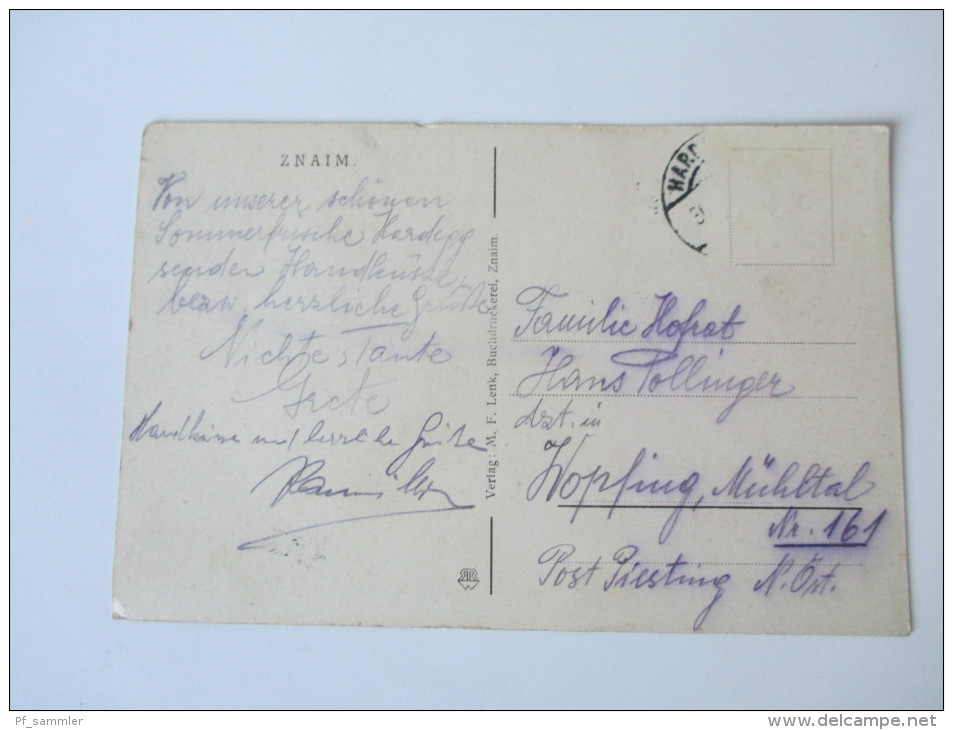 ZNAIM.
Von unserer schönen
Sommerfrische Hardegg
senden Handküsse,
bezw. herzliche Grüße
Nichte & Tante
Grete
Handküsse und herzliche Grüße
Verlag: M. F. Lenk, Buchdruckerei, Znaim.
HARD
Familie Hofrat
Hans Pollinger
dzt. in
Wopfing, Mühltal
Nr. 161
Post Piesting N. Öst.
Pf_sammler
www.delcampe.net